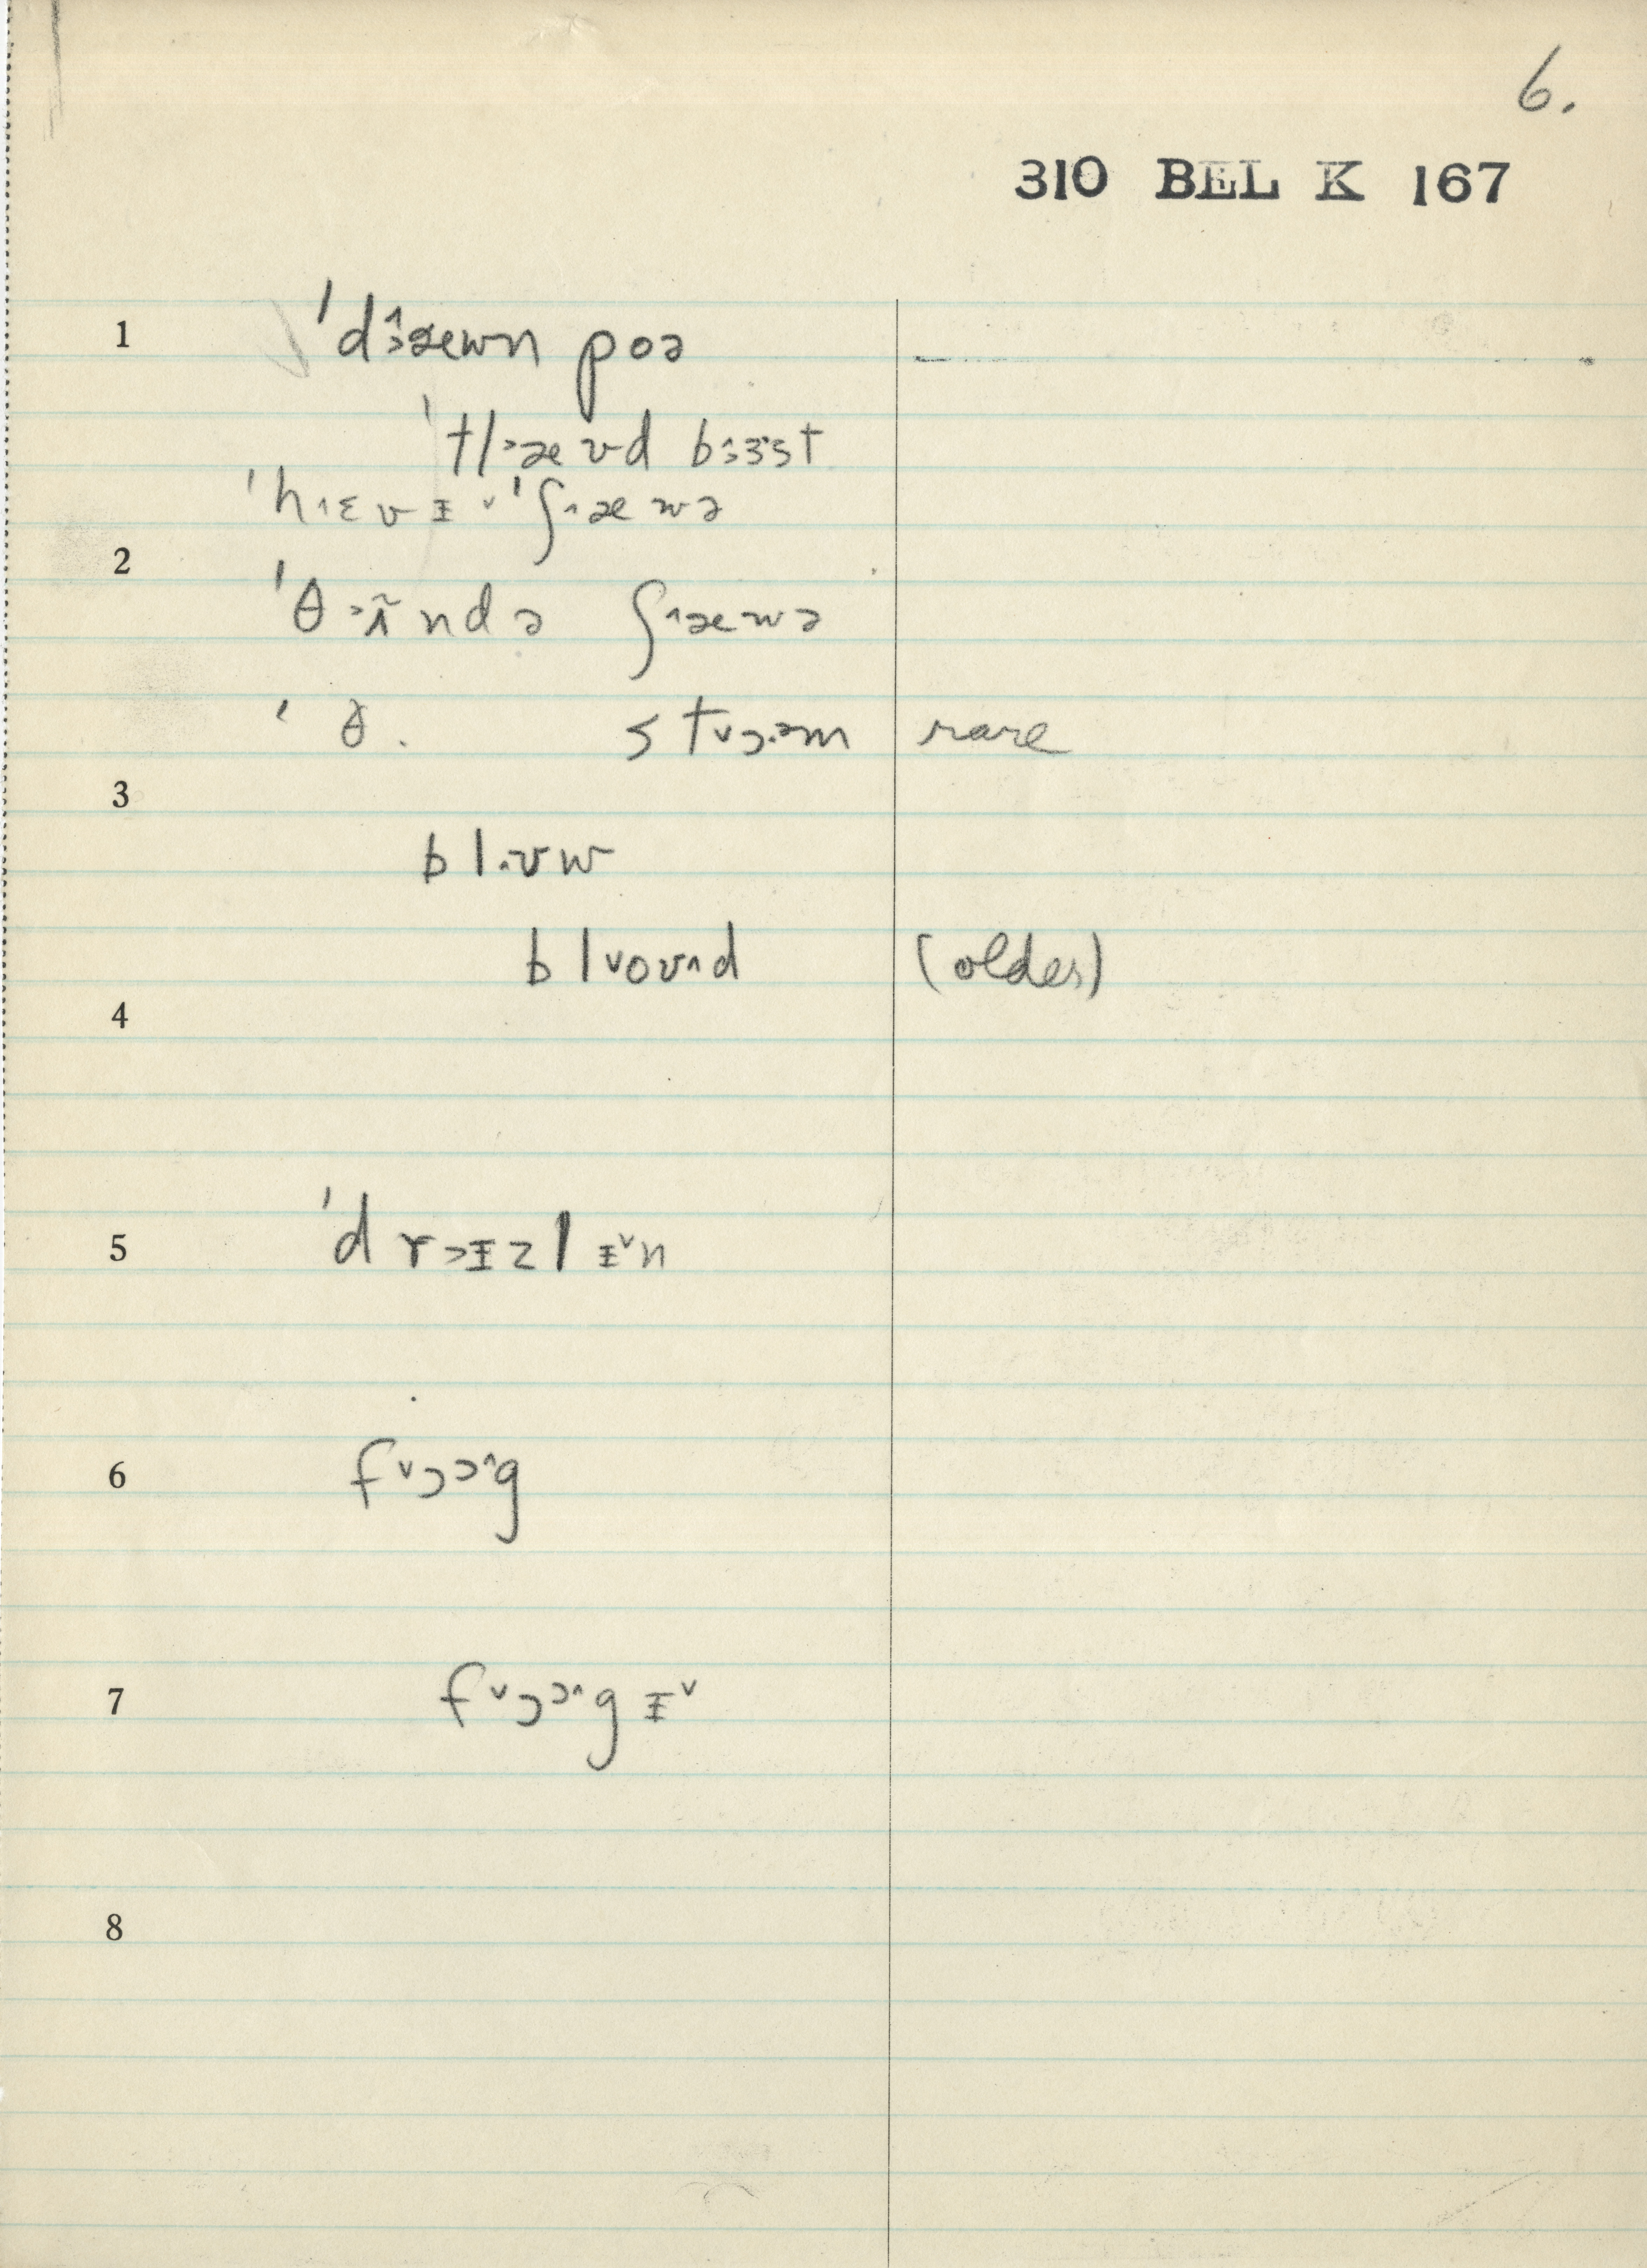 6.
310 BEL K 167
1 'd˄>æʊn poə
'tl>æʊd b˄>ɜɜst
'h˄ɛvɪ˅ 'ʃ˄æʊə
2
'θ>ɪ̃ndə ʃ˄æʊə
'θ. st˅ɔ.əm rare
3
bl˄.ʊw
bl˅oʊ˄d (older)
4
5 'dr>ɪzlɪ˅n
6 f˅ɔɔ˄g
7 f˅ɔɔ˄gɪ˅
8